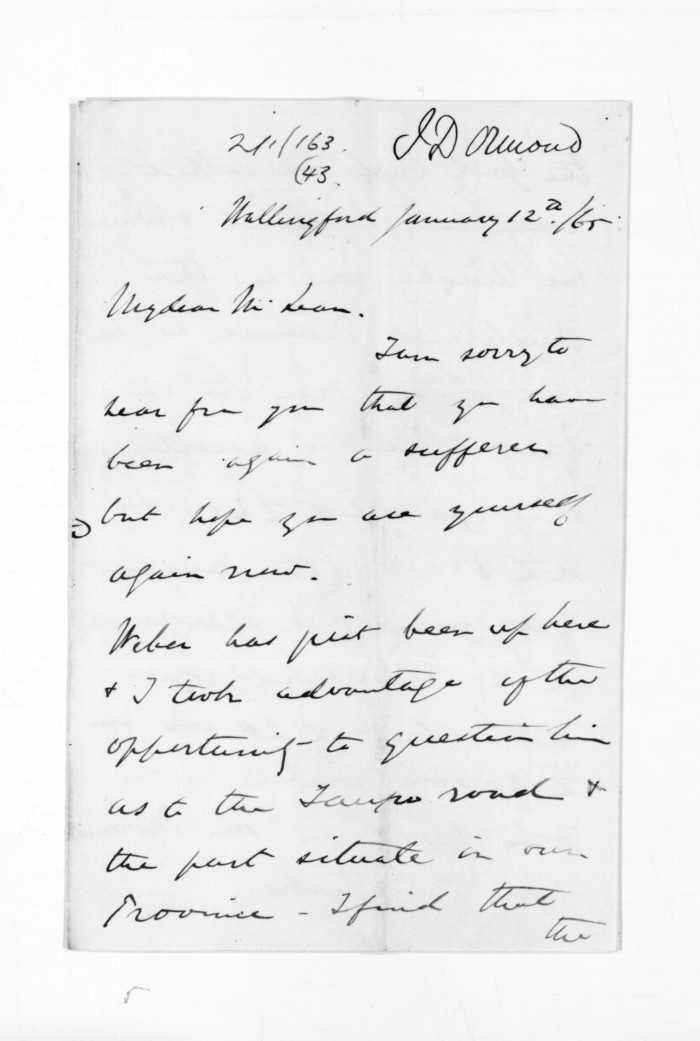 J D Ormond
2/1/163
(43.
Wallingford January 12th/65
My dear McLean.
I am sorry to
hear from you that you have
been again a sufferer
but hope you are yourself
again now.
Weber has just been up here
& I took advantage of the
opportunity to question him
as to the Taupo road &
the part situate in our
Province - I find that
the
5